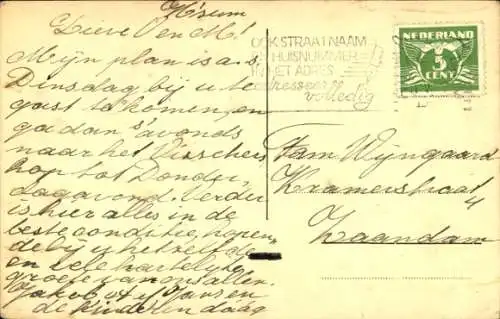 H'sum
Lieve V en M!
Mijn plan is a.s.
Dinsdag bij u te
gast te komen, en
ga dan s'avonds
naar het Visschers
hop tot Donder,
dagavond. Verder
is hier alles in de
beste conditie, hopen,
de bij u hetzelfde
en vele hartelijke
groeten van ons allen.
Jakob Jansen
de kinderen daag
OOK STRAATNAAM
EN HUISNUMMER
IN HET ADRES
adresseer
volledig
NEDERLAND
5
CENT
Fam Wijngaard
Kramerstraat 4
Zaandam